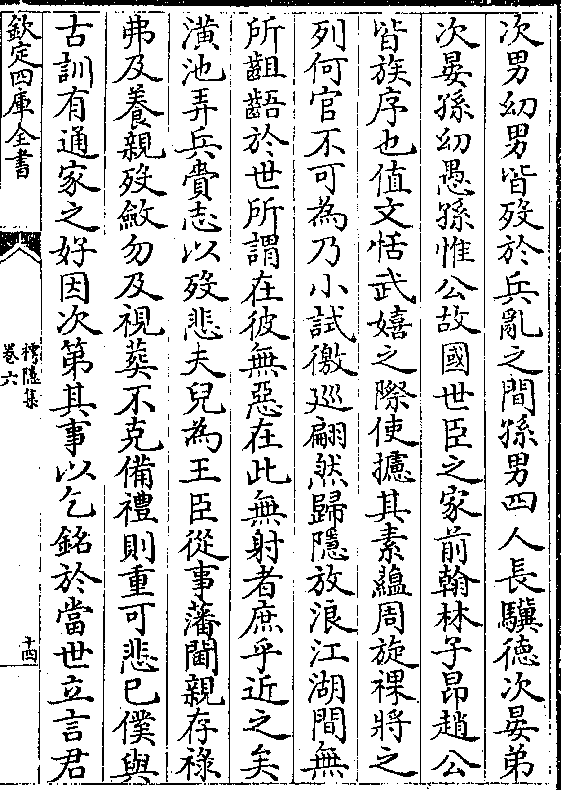 次男幼男皆殁於兵亂之間孫男四人長驥德次晏弟
次晏孫幼愚孫惟公故國世臣之家前翰林子昂趙公
皆族序也值文恬武嬉之際使攄其素蘊周旋祼將之
列何官不可為乃小試徼巡翩然歸隱放浪江湖間無
所齟齬於世所謂在彼無惡在此無射者庶乎近之矣
潢池弄兵賫志以殁悲夫兒為王臣從事藩閫親存禄
弗及養親殁斂勿及視葬不克備禮則重可悲已僕與
古訓有通家之好因次第其事以乞銘於當世立言君
欽定四庫全書
樗隱集
卷六
十四